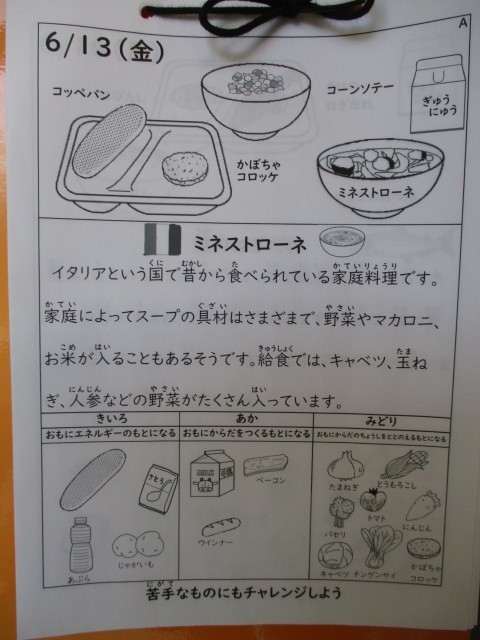 A
6/13(金)
コッペパン
コーンソテー
ぎゅうにゅう
かぼちゃ
コロッケ
ミネストローネ
ミネストローネ
イタリアという国で昔から食べられている家庭料理です。
家庭によってスープの具材はさまざまで、野菜やマカロニ、
お米が入ることもあるそうです。給食では、キャベツ、玉ね
ぎ、人参などの野菜がたくさん入っています。
きいろ
あか
みどり
おもにエネルギーのもとになる
おもにからだをつくるもとになる
おもにからだのちょうしをととのえるもとになる
さとう
MILK
ベーコン
たまねぎ
とうもろこし
トマト
にんじん
パセリ
ウインナー
あぶら
じゃがいも
キャベツ
チンゲンサイ
かぼちゃ
コロッケ
苦手なものにもチャレンジしよう